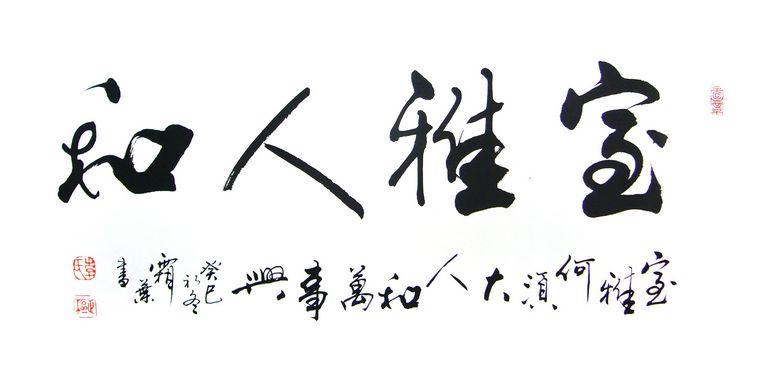 室雅人和
室雅何須大人和萬事興
癸巳初冬
霜葉書